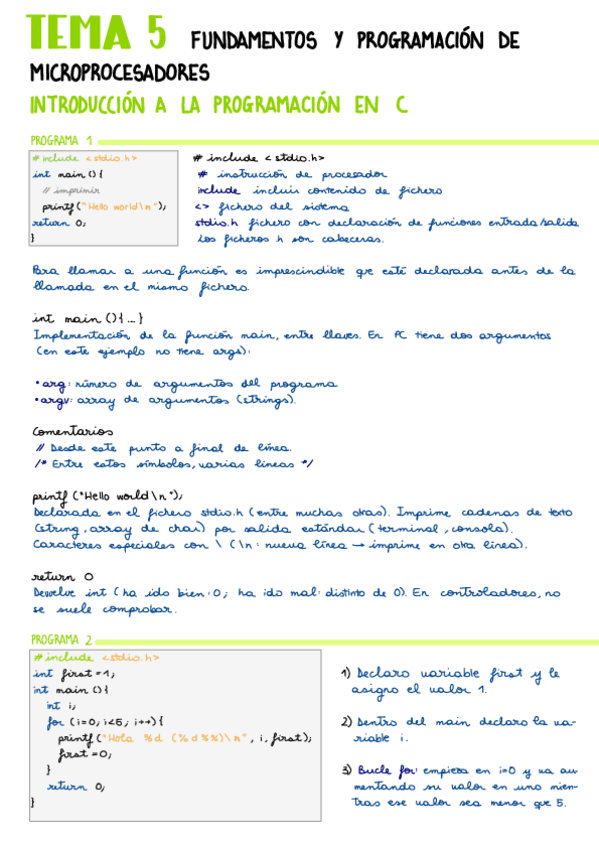 TEMA 5 FUNDAMENTOS Y PROGRAMACIÓN DE
MICROPROCESADORES
INTRODUCCIÓN A LA PROGRAMACIÓN EN C
PROGRAMA 1
# include <stdio.h>
int main () {
// imprimir
printf ("Hello world\n");
return 0;
}
# include <stdio.h>
# instrucción de procesador
include incluir contenido de fichero
<> fichero del sistema
stdio.h fichero con declaración de funciones entrada/salida
Los ficheros h son cabeceras.
Para llamar a una función es imprescindible que esté declarada antes de la
llamada en el mismo fichero.
int main () { ... }
Implementación de la función main, entre llaves. En PC tiene dos argumentos
(en este ejemplo no tiene args):
• arg: número de argumentos del programa
• argv: array de argumentos (strings).
Comentarios
// Desde este punto a final de línea.
/* Entre estos símbolos, varias líneas */
printf ("Hello world\n");
Declarada en el fichero stdio.h (entre muchas otras). Imprime cadenas de texto
(string, array de char) por salida estándar (terminal, consola).
Caracteres especiales con \ (\n: nueva línea → imprime en otra línea).
return 0
Devuelve int (ha ido bien: 0; ha ido mal: distinto de 0). En controladores, no
se suele comprobar.
PROGRAMA 2
# include <stdio.h>
int first = 1;
int main () {
int i;
for (i=0; i<5; i++) {
printf ("Hola %d (%d %%)\n", i, first);
first = 0;
}
return 0;
}
1) Declaro variable first y le
asigno el valor 1.
2) Dentro del main declaro la va-
riable i.
3) Bucle for: empieza en i=0 y va au-
mentando su valor en uno mien-
tras ese valor sea menor que 5.